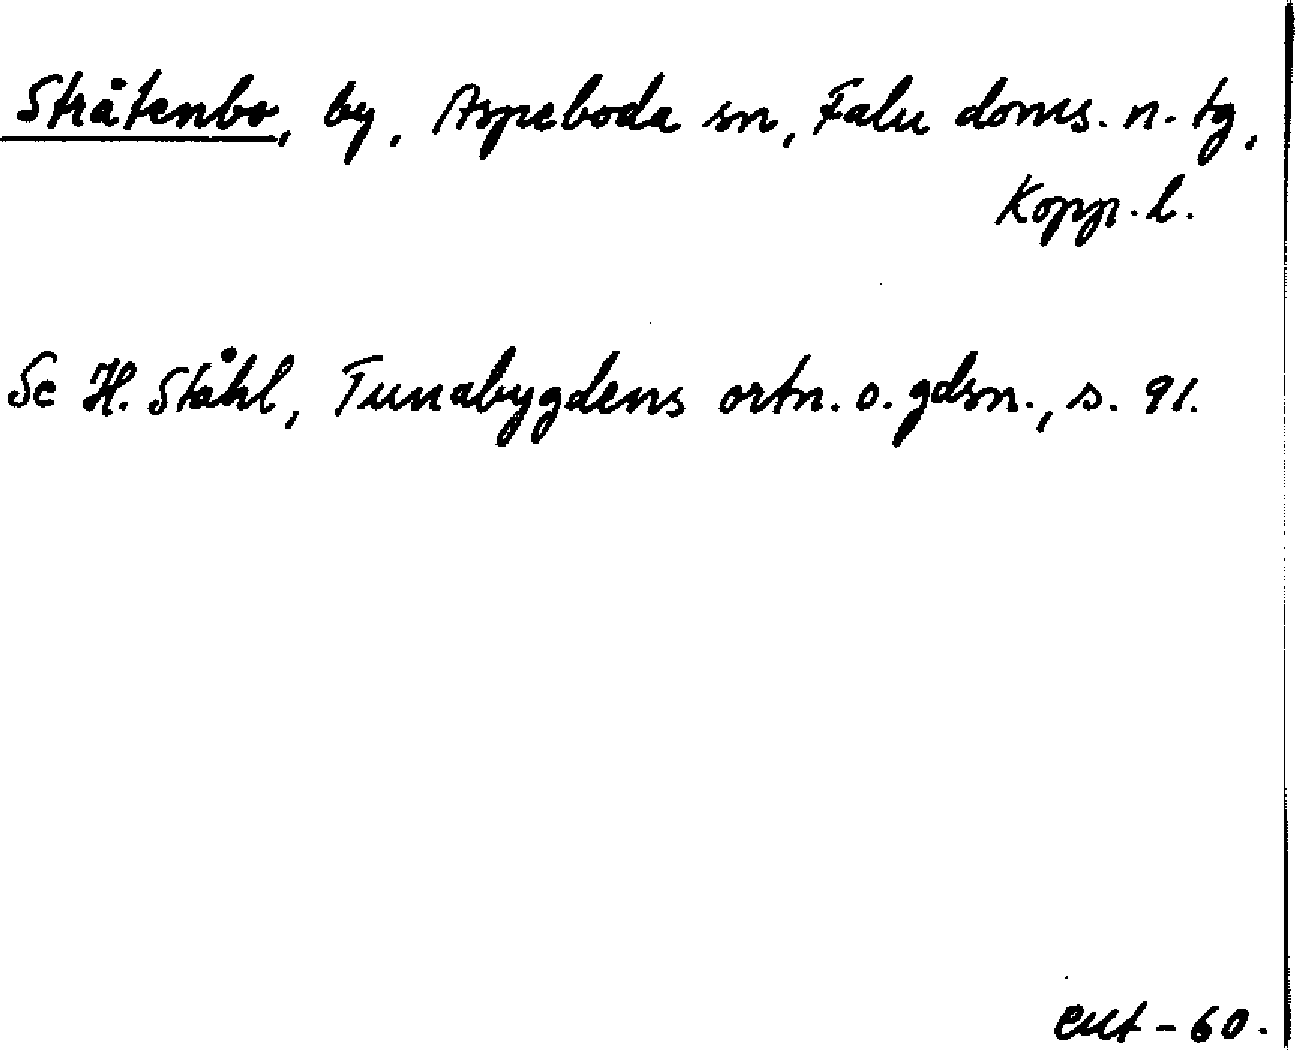 Stråtenbo, by, Aspeboda sn, Falu doms. n. tg,
Kopp. l.
Se H. Ståhl, Tunabygdens ortn. o. gdsn., s. 91.
-60.